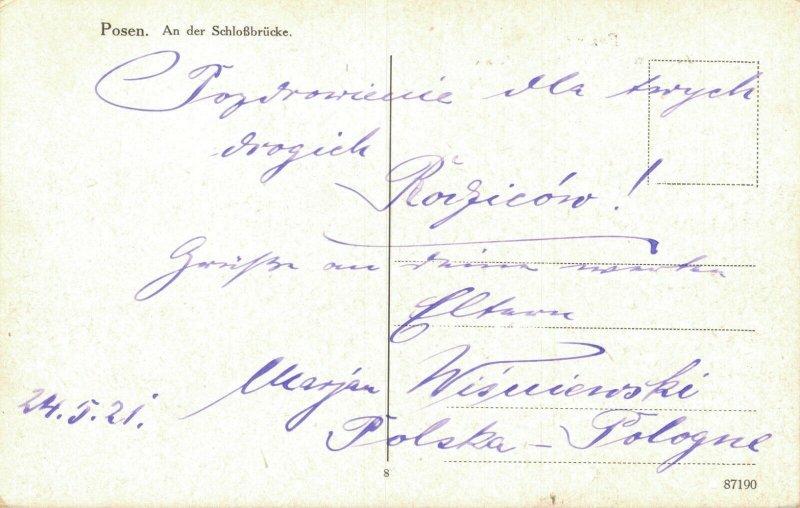 Posen. An der Schloßbrücke.
Pozdrowienie dla twych
drogich
Rodziców!
Grüße an deine werten
Eltern
Marjan Wiśniewski
24.5.21.
Polska – Pologne
8
87190